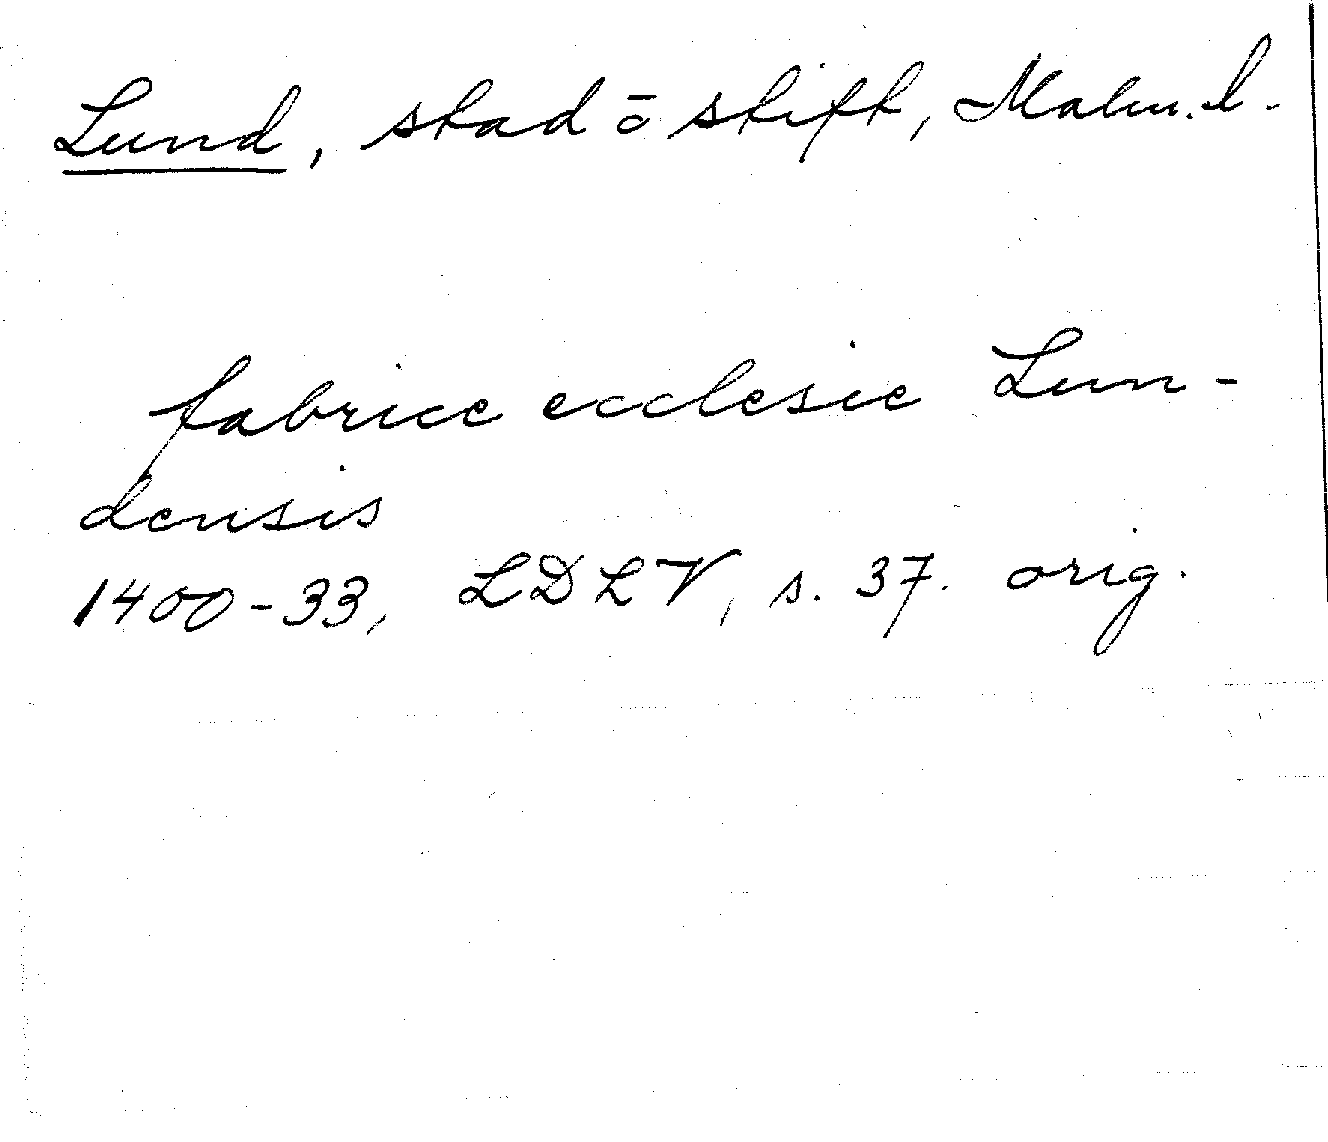 Lund, stad ō stift, Malm. l.
fabrice ecclesie Lun-
densis
1400-33, LDLV, s. 37. orig.